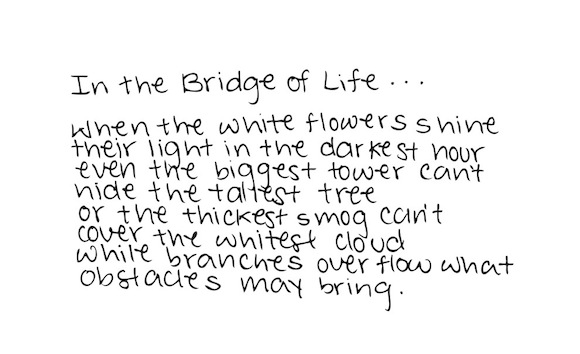 In the Bridge of Life...
When the white flowers shine
their light in the darkest hour
even the biggest tower can't
hide the tallest tree
or the thickest smog can't
cover the whitest cloud
while branches overflow what
obstacles may bring.